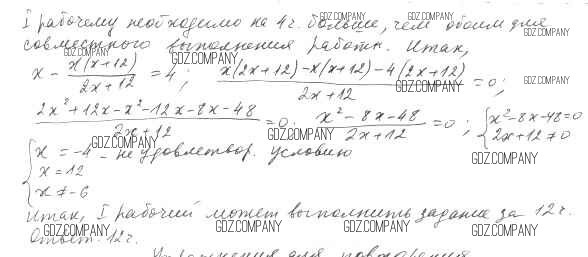 I рабочему необходимо на 4 г. больше, чем обоим для
совместного выполнения работы. Итак,
x - x(x+12)/(2x+12) = 4; (x(2x+12)-x(x+12)-4(2x+12))/(2x+12) = 0;
(2x²+12x-x²-12x-8x-48)/(2x+12) = 0; (x²-8x-48)/(2x+12) = 0; { x²-8x-48=0
2x+12≠0
{ x = -4 - не удовлетвор. условию
x = 12
x ≠ -6
Итак, I рабочий может выполнить задание за 12 г.
Ответ: 12 г.
Упражнения для повторения
GDZ.COMPANY
GDZ.COMPANY
GDZ.COMPANY
GDZ.COMPANY
GDZ.COMPANY
GDZ.COMPANY
GDZ.COMPANY
GDZ.COMPANY
GDZ.COMPANY
GDZ.COMPANY
GDZ.COMPANY
GDZ.COMPANY
GDZ.COMPANY
GDZ.COMPANY